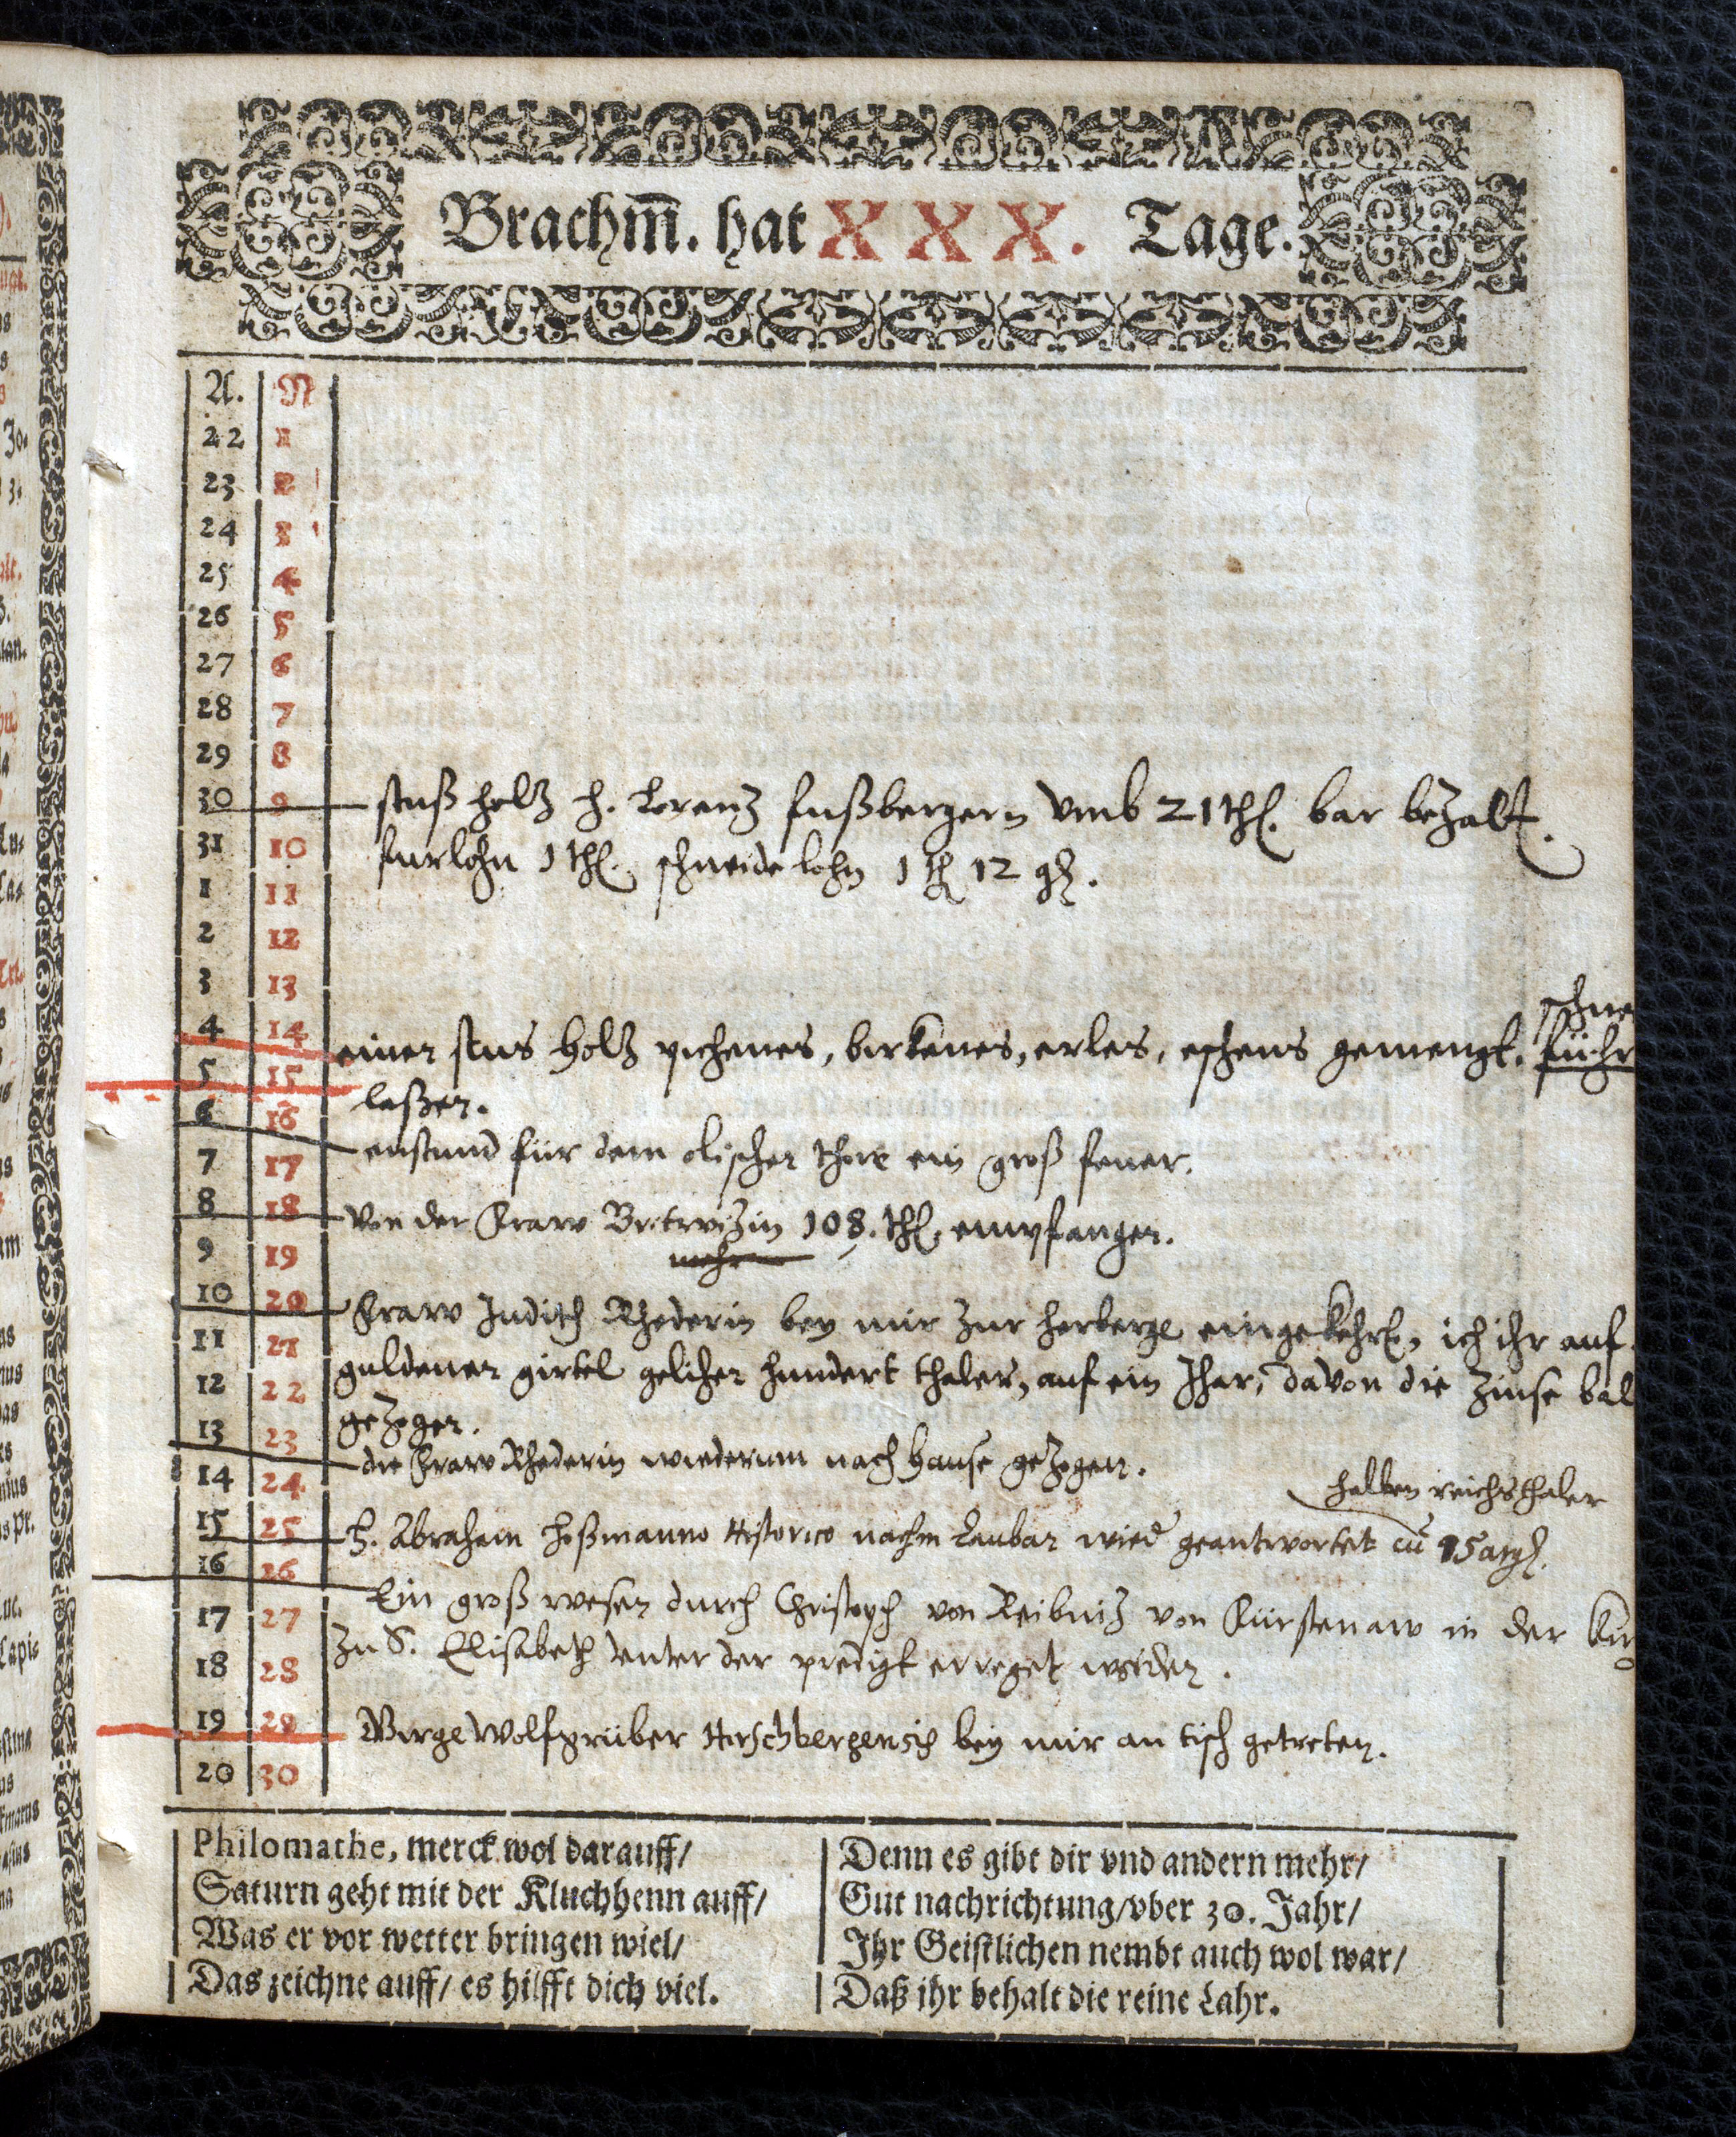 Brachm̃. hat XXX. Tage.
A. N
22 1
23 2
24 3
25 4
26 5
27 6
28 7
29 8
30 9 holtz h. Lorenz fußbergern vmb 21 thl. bar bezalt.
31 10 furlohn 1 thl. schneide lohn 1 thl 12 gl.
1 11
2 12
3 13
schne
4 14 einen holtz eichenes, birkenes, erles, eschens gemengt. führ
5 15 laßen.
6 16
7 17 enstund für dem olischen thore ein groß feuer.
8 18 von der Fraw 108. thl. empfangen.
9 19 mehr
10 20 Fraw Judith Rhederin bey mir zur herberge eingekehrt, ich ihr auf
11 21 guldenen girtel gelihen hundert thaler, auf ein Jhar, davon die zinse bal
12 22 gezogen.
13 23 die Fraw Rhederin wiederumb nach hause gezogen.
14 24 halben reichsthaler
15 25 h. Abraham Hoßmanno Historico nachm Lauban wied geantwortet cu 15
16 26 Ein groß wesen durch Christoph von Reibniz von Kürstenaw in der Kir
17 27 zu S. Elisabeth vnter der predigt erreget worden.
18 28
19 29 Wolfgrüber Hirschbergensis bey mir an tisch getreten.
20 30
Philomathe, merck wol darauff/
Saturn geht mit der Kluchhenn auff/
Was er vor wetter bringen wiel/
Das zeichne auff/ es hilfft dich viel.
Denn es gibt dir vnd andern mehr/
Gut nachrichtung/vber 30. Jahr/
Ihr Geistlichen nembt auch wol war/
Daß ihr behalt die reine Lahr.